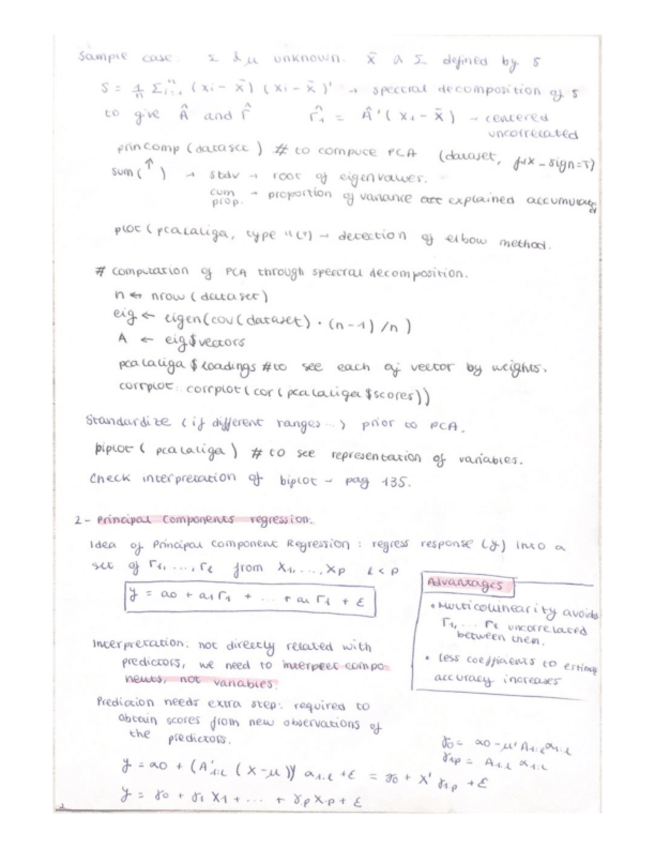 Sample case: Σ & μ unknown. x̄ ∧ Σ defined by S
S = 1/n Σⁿᵢ₌₁ (xi - x̄) (xi - x̄)' → spectral decomposition of S
to give Â and Γ̂    Γ̂₁ = Â'(xi - x̄) → centered
uncorrelated
princomp (dataset) # to compute PCA (dataset, fix_sign=T)
sum(↑) → stdv → root of eigenvalues.
cum prop. → proportion of variance are explained accumulated
plot (pcalaliga, type "l") → detection of elbow method.
# computation of PCA through spectral decomposition.
n ← nrow (dataset)
eig ← eigen(cov(dataset) · (n-1)/n)
A ← eig$vectors
pcalaliga $ loadings # to see each aj vector by weights.
corrplot: corrplot(cor(pcalaliga$scores))
Standardize (if different ranges...) prior to PCA.
biplot (pcalaliga) # to see representation of variables.
Check interpretation of biplot - pag 135.
2- Principal components regression.
Idea of Principal Component Regression: regress response (y) into a
set of Γ1, ..., Γℓ from X1, ..., Xp  ℓ < p
y = α0 + α1 Γ1 + ... + αℓ Γℓ + ε
Advantages
• Multicolinearity avoids
Γ1, ... Γℓ uncorrelated
between them.
• less coefficients to
accuracy increases
Interpretation: not directly related with
predictors, we need to interpret compo
nents, not variables.
Prediction needs extra step: required to
obtain scores from new observations of
the predictors.
γ0 = α0 - μ' A1:ℓ α1:ℓ
γ1:p = A1:ℓ α1:ℓ
y = α0 + (A'1:ℓ (X - μ))' α1:ℓ + ε = γ0 + X' γ1:p + ε
y = γ0 + γ1 X1 + ... + γp Xp + ε